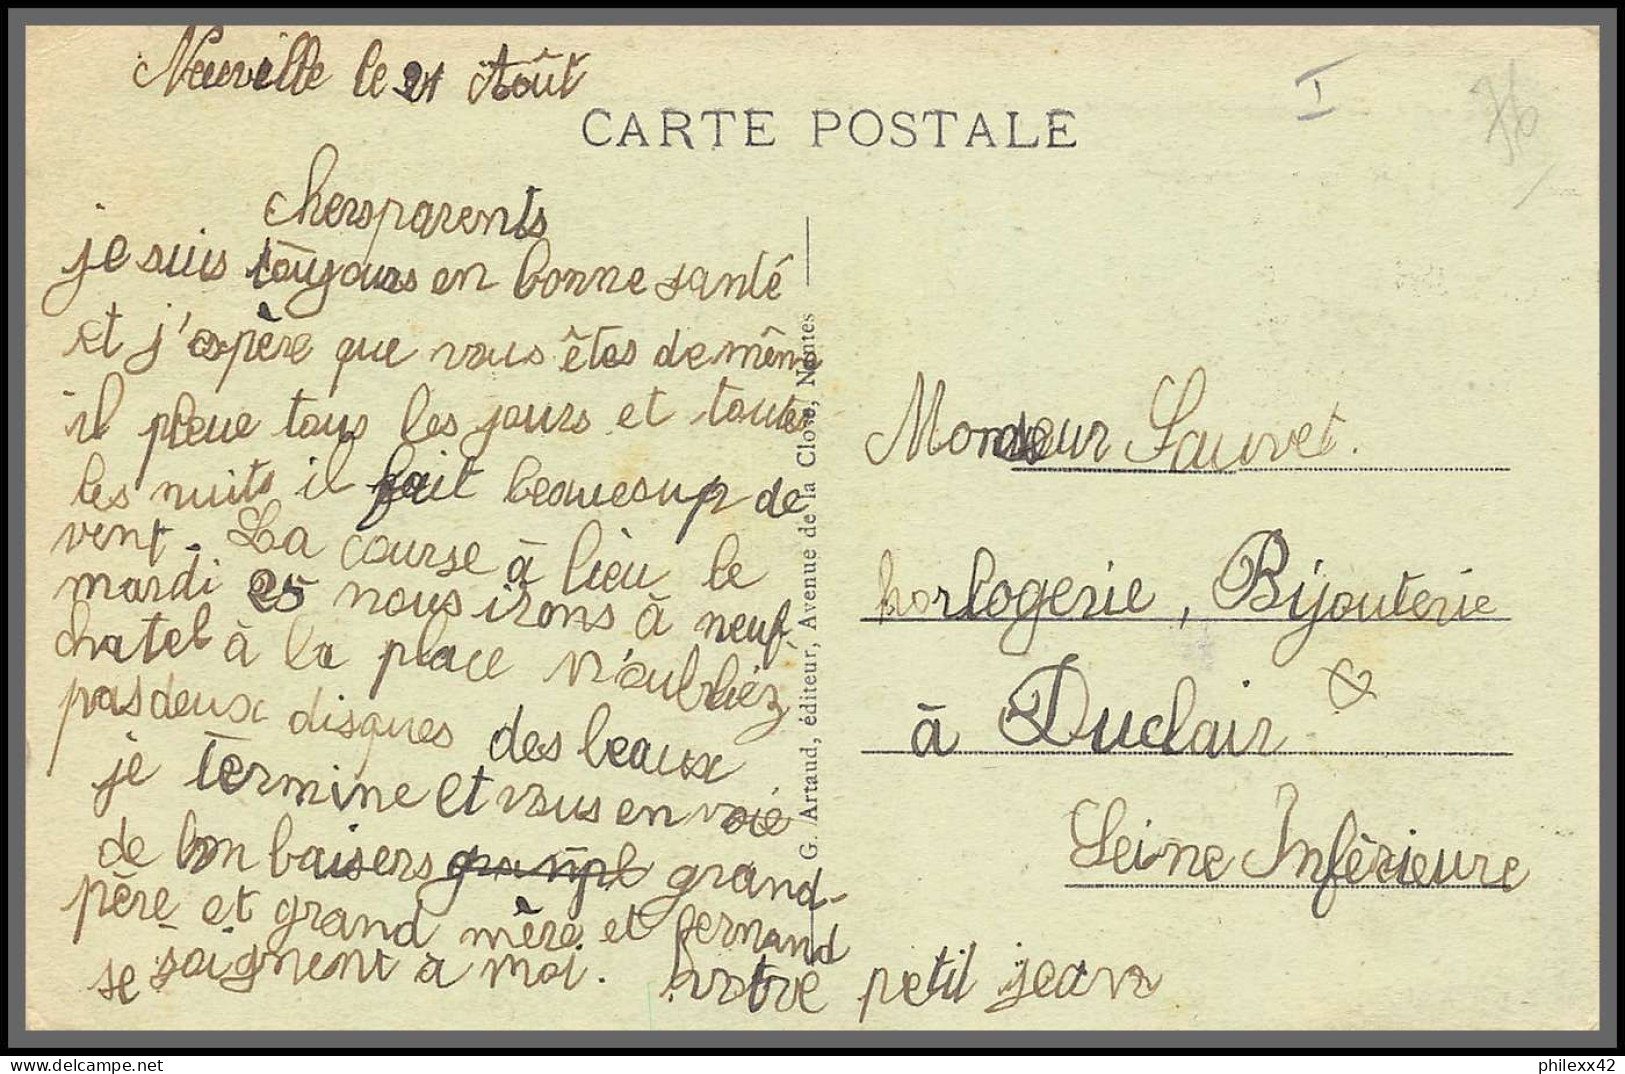 Neuville le 21 Août
CARTE POSTALE
I
76
chersparents
je suis toujours en bonne santé
et j'espère que vous êtes de même
il pleue tous les jours et toutes
les nuits il fait beaucesup de
vent. La course à lieu le
mardi 25 nous irons à neuf-
chatel à la place N'oubliez
pasdeux disques des beaux
je termine et vous en voie
de bon baisers grand-
père et grand mère et fernand
se soignent à moi. votre petit jean
G. Artaud, éditeur, Avenue de la Close, Nantes
Monsieur Sauvet.
horlogerie, Bijouterie
à Duclair
Seine Infèrieure
philexx42